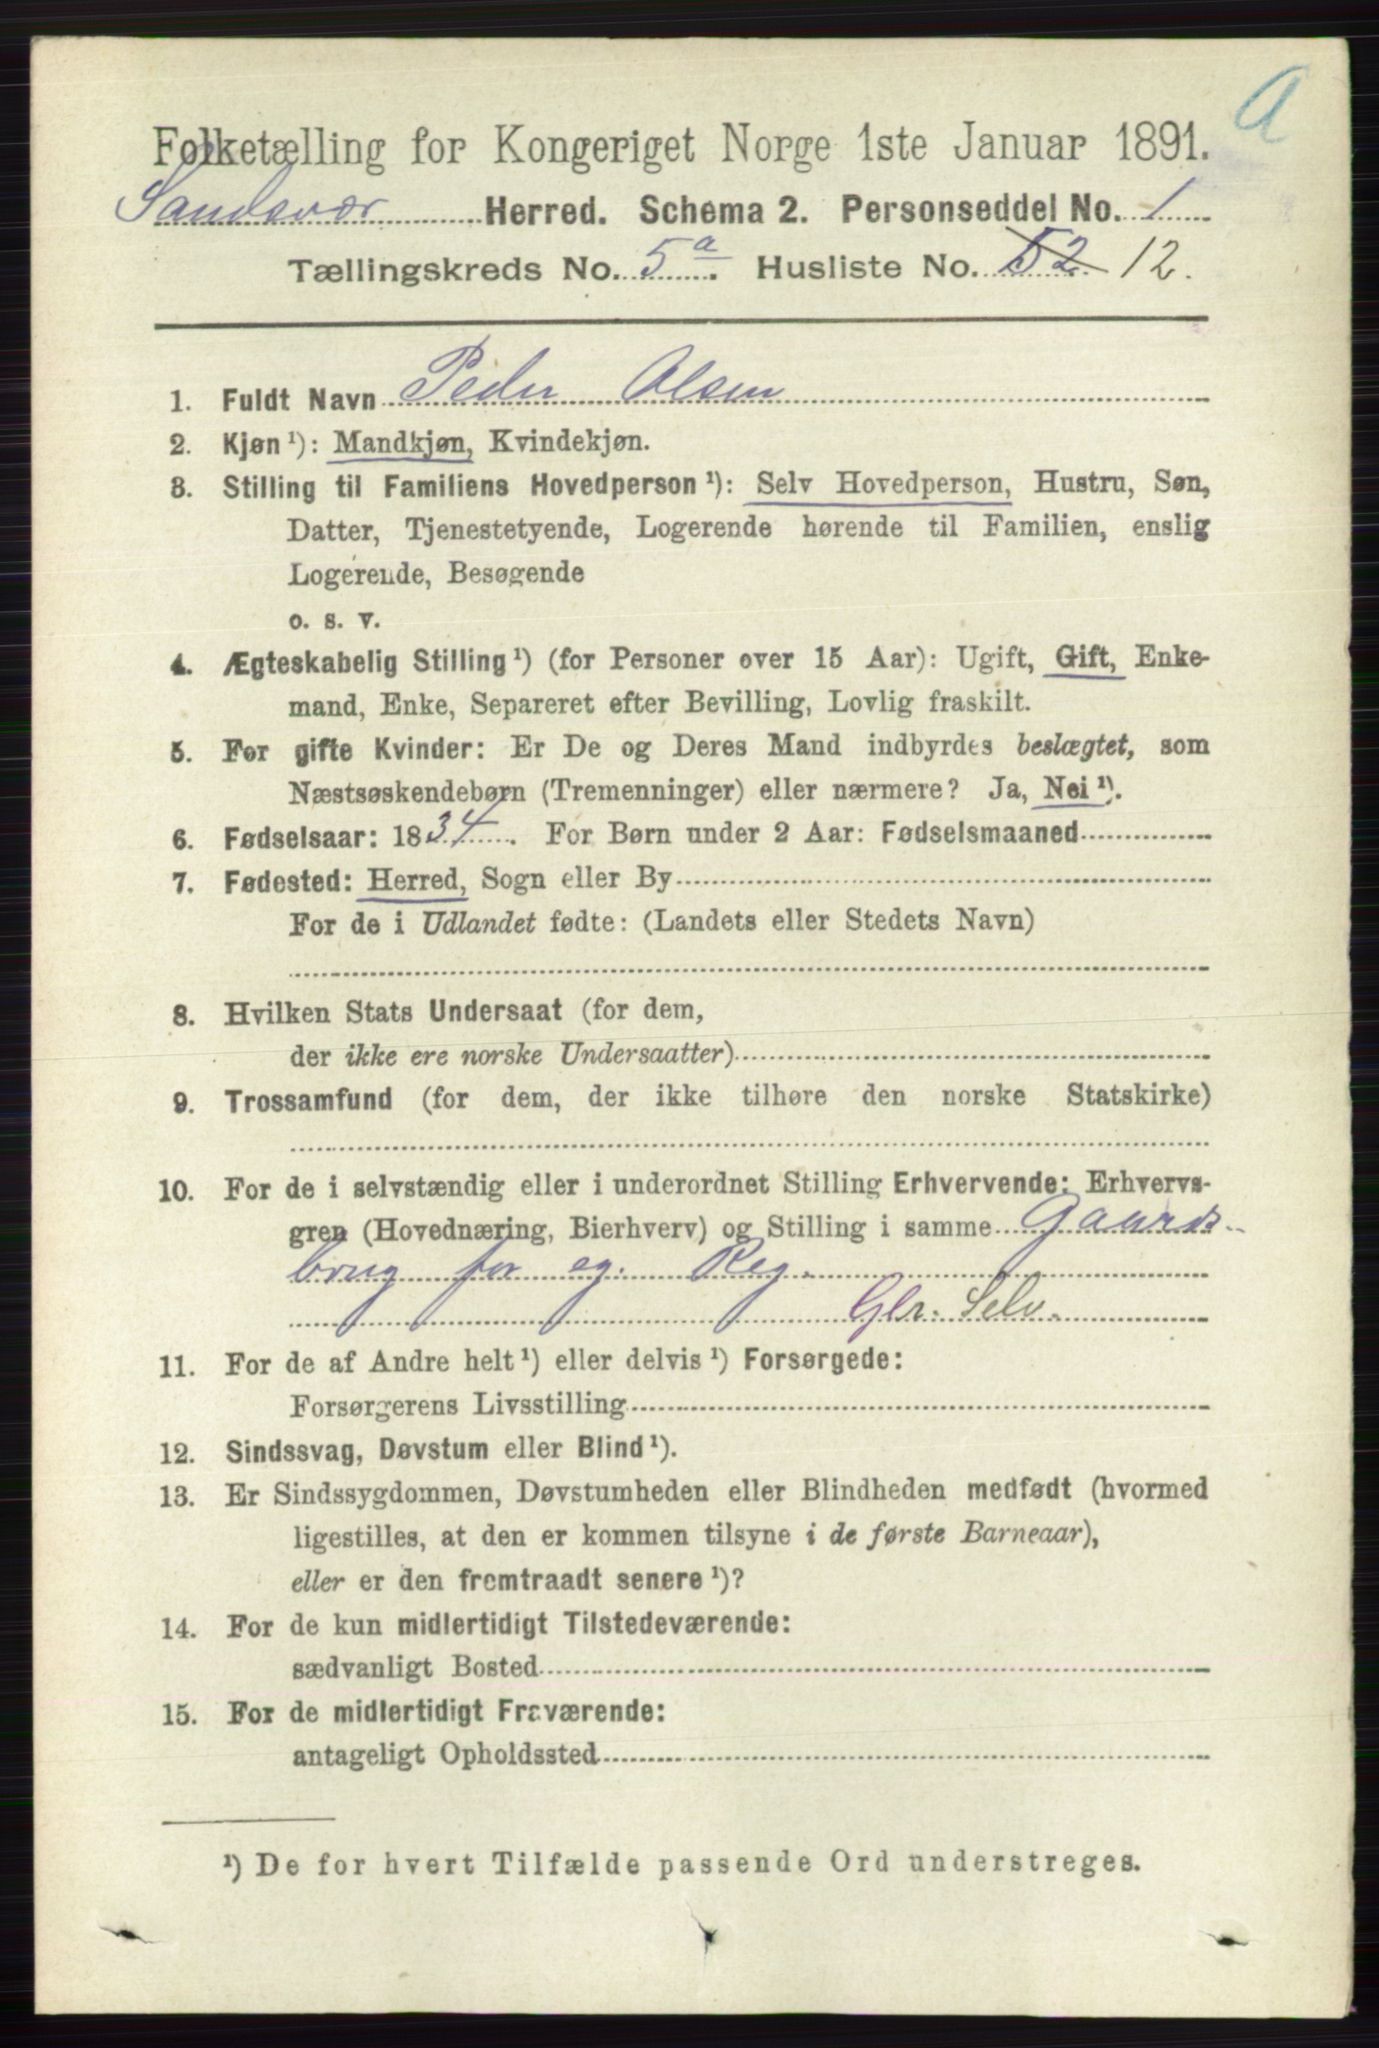 A
Folketælling for Kongeriget Norge 1ste Januar 1891.
Sandsvær Herred. Schema 2. Personseddel No. 1
Tællingskreds No. 5a. Husliste No. 52 12.
1. Fuldt Navn Peder Olsen
2. Kjøn ¹): Mandkjøn, Kvindekjøn.
3. Stilling til Familiens Hovedperson ¹): Selv Hovedperson, Hustru, Søn,
Datter, Tjenestetyende, Logerende hørende til Familien, enslig
Logerende, Besøgende
o. s. v.
4. Ægteskabelig Stilling ¹) (for Personer over 15 Aar): Ugift, Gift, Enke-
mand, Enke, Separeret efter Bevilling, Lovlig fraskilt.
5. For gifte Kvinder: Er De og Deres Mand indbyrdes beslægtet, som
Næstsøskendebørn (Tremenninger) eller nærmere? Ja, Nei ¹).
6. Fødselsaar: 1834. For Børn under 2 Aar: Fødselsmaaned
7. Fødested: Herred, Sogn eller By
For de i Udlandet fødte: (Landets eller Stedets Navn)
8. Hvilken Stats Undersaat (for dem,
der ikke ere norske Undersaatter)
9. Trossamfund (for dem, der ikke tilhøre den norske Statskirke)
10. For de i selvstændig eller i underordnet Stilling Erhvervende: Erhvervs-
gren (Hovednæring, Bierhverv) og Stilling i samme Gaards-
brug for eg. Reg.
Glr. Selv.
11. For de af Andre helt ¹) eller delvis ¹) Forsørgede:
Forsørgerens Livsstilling
12. Sindssvag, Døvstum eller Blind ¹).
13. Er Sindssygdommen, Døvstumheden eller Blindheden medfødt (hvormed
ligestilles, at den er kommen tilsyne i de første Barneaar),
eller er den fremtraadt senere ¹)?
14. For de kun midlertidigt Tilstedeværende:
sædvanligt Bosted
15. For de midlertidigt Fraværende:
antageligt Opholdssted
¹) De for hvert Tilfælde passende Ord understreges.